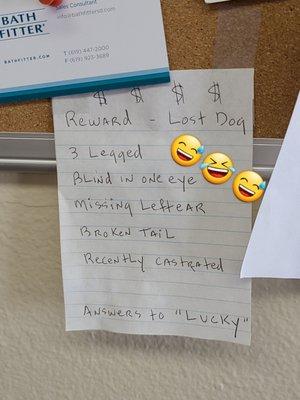 BATH
FITTER®
BATHFITTER.COM
Sales Consultant
info@bathfittersd.com
T (619) 447-2000
F (619) 923-3689
$ $ $ $
REWARD - LOST DOG
3 LEGGED
BLIND IN ONE EYE
MISSING LEFT EAR
BROKEN TAIL
RECENTLY CASTRATED
ANSWERS TO "LUCKY"